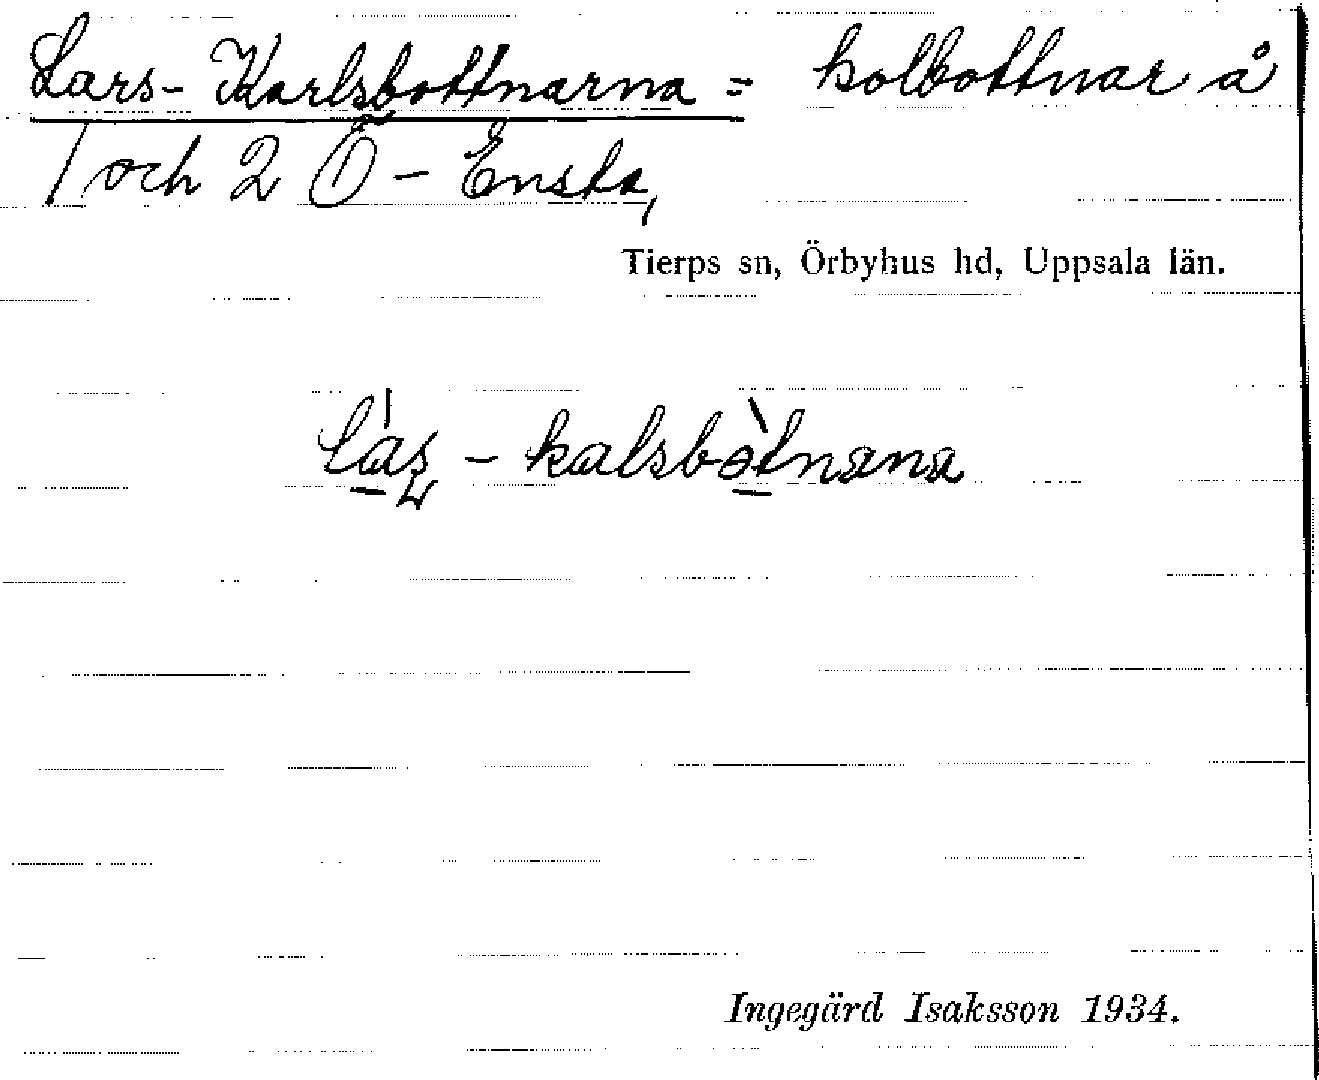 Lars-Karlsbottnarna = kolbottnar å
1 och 2 Ö - Ensta,
Tierps sn, Örbyhus hd, Uppsala län.
la̱s - kalsbo̱tnana
Ingegärd Isaksson 1934.